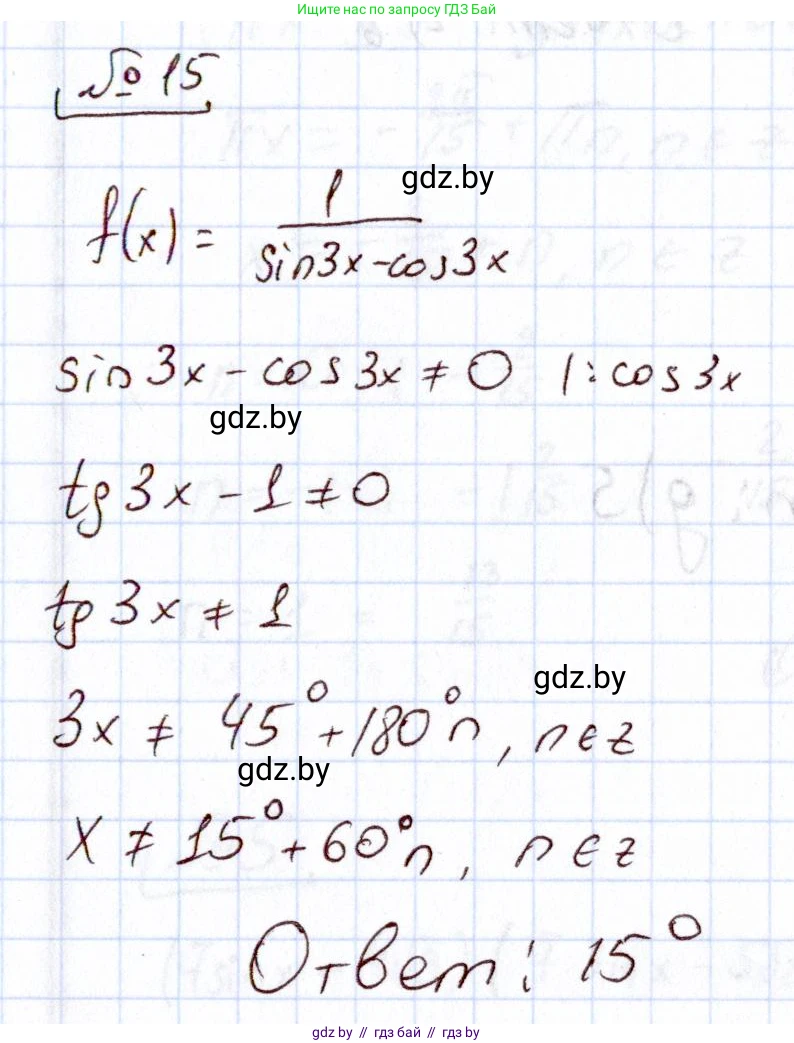 Ищите нас по запросу ГДЗ Бай
№ 15
gdz.by
f(x) = 1 / (sin3x-cos3x)
sin 3x - cos 3x ≠ 0 |: cos 3x
gdz.by
tg 3x - 1 ≠ 0
tg 3x ≠ 1
gdz.by
3x ≠ 45° + 180°n, n∈z
gdz.by
x ≠ 15° + 60°n, n∈z
Ответ: 15°
gdz.by // гдз бай // gdz.by